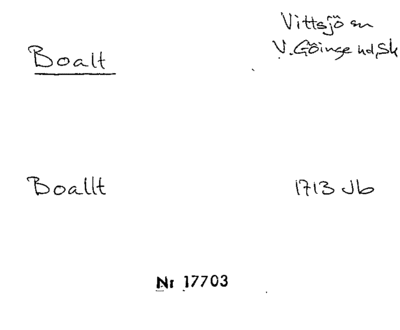 Vittsjö sn
Boalt
V. Göinge hd, Sk
Boallt
1713 Jb
Nr 17703